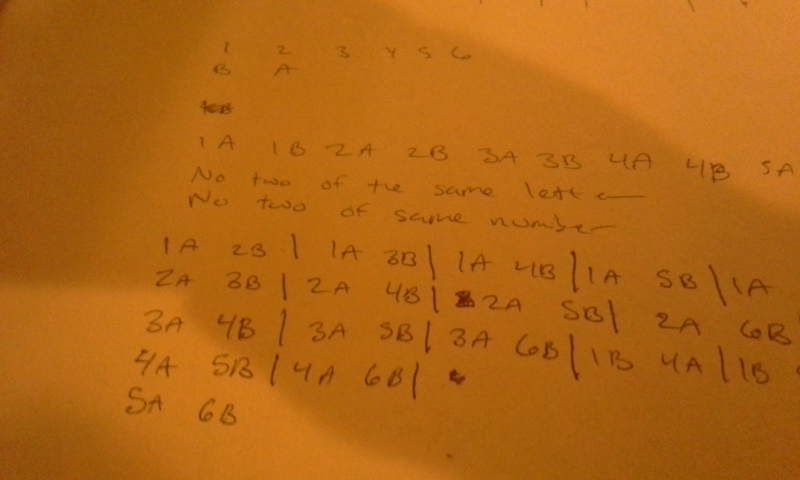 1 2 3 4 5 6
B A
1A 1B 2A 2B 3A 3B 4A 4B 5A
No two of the same letter
No two of same number
1A 2B | 1A 3B | 1A 4B | 1A 5B | 1A
2A 3B | 2A 4B | 2A 5B | 2A 6B
3A 4B | 3A 5B | 3A 6B | 1B 4A | 1B
4A 5B | 4A 6B |
5A 6B